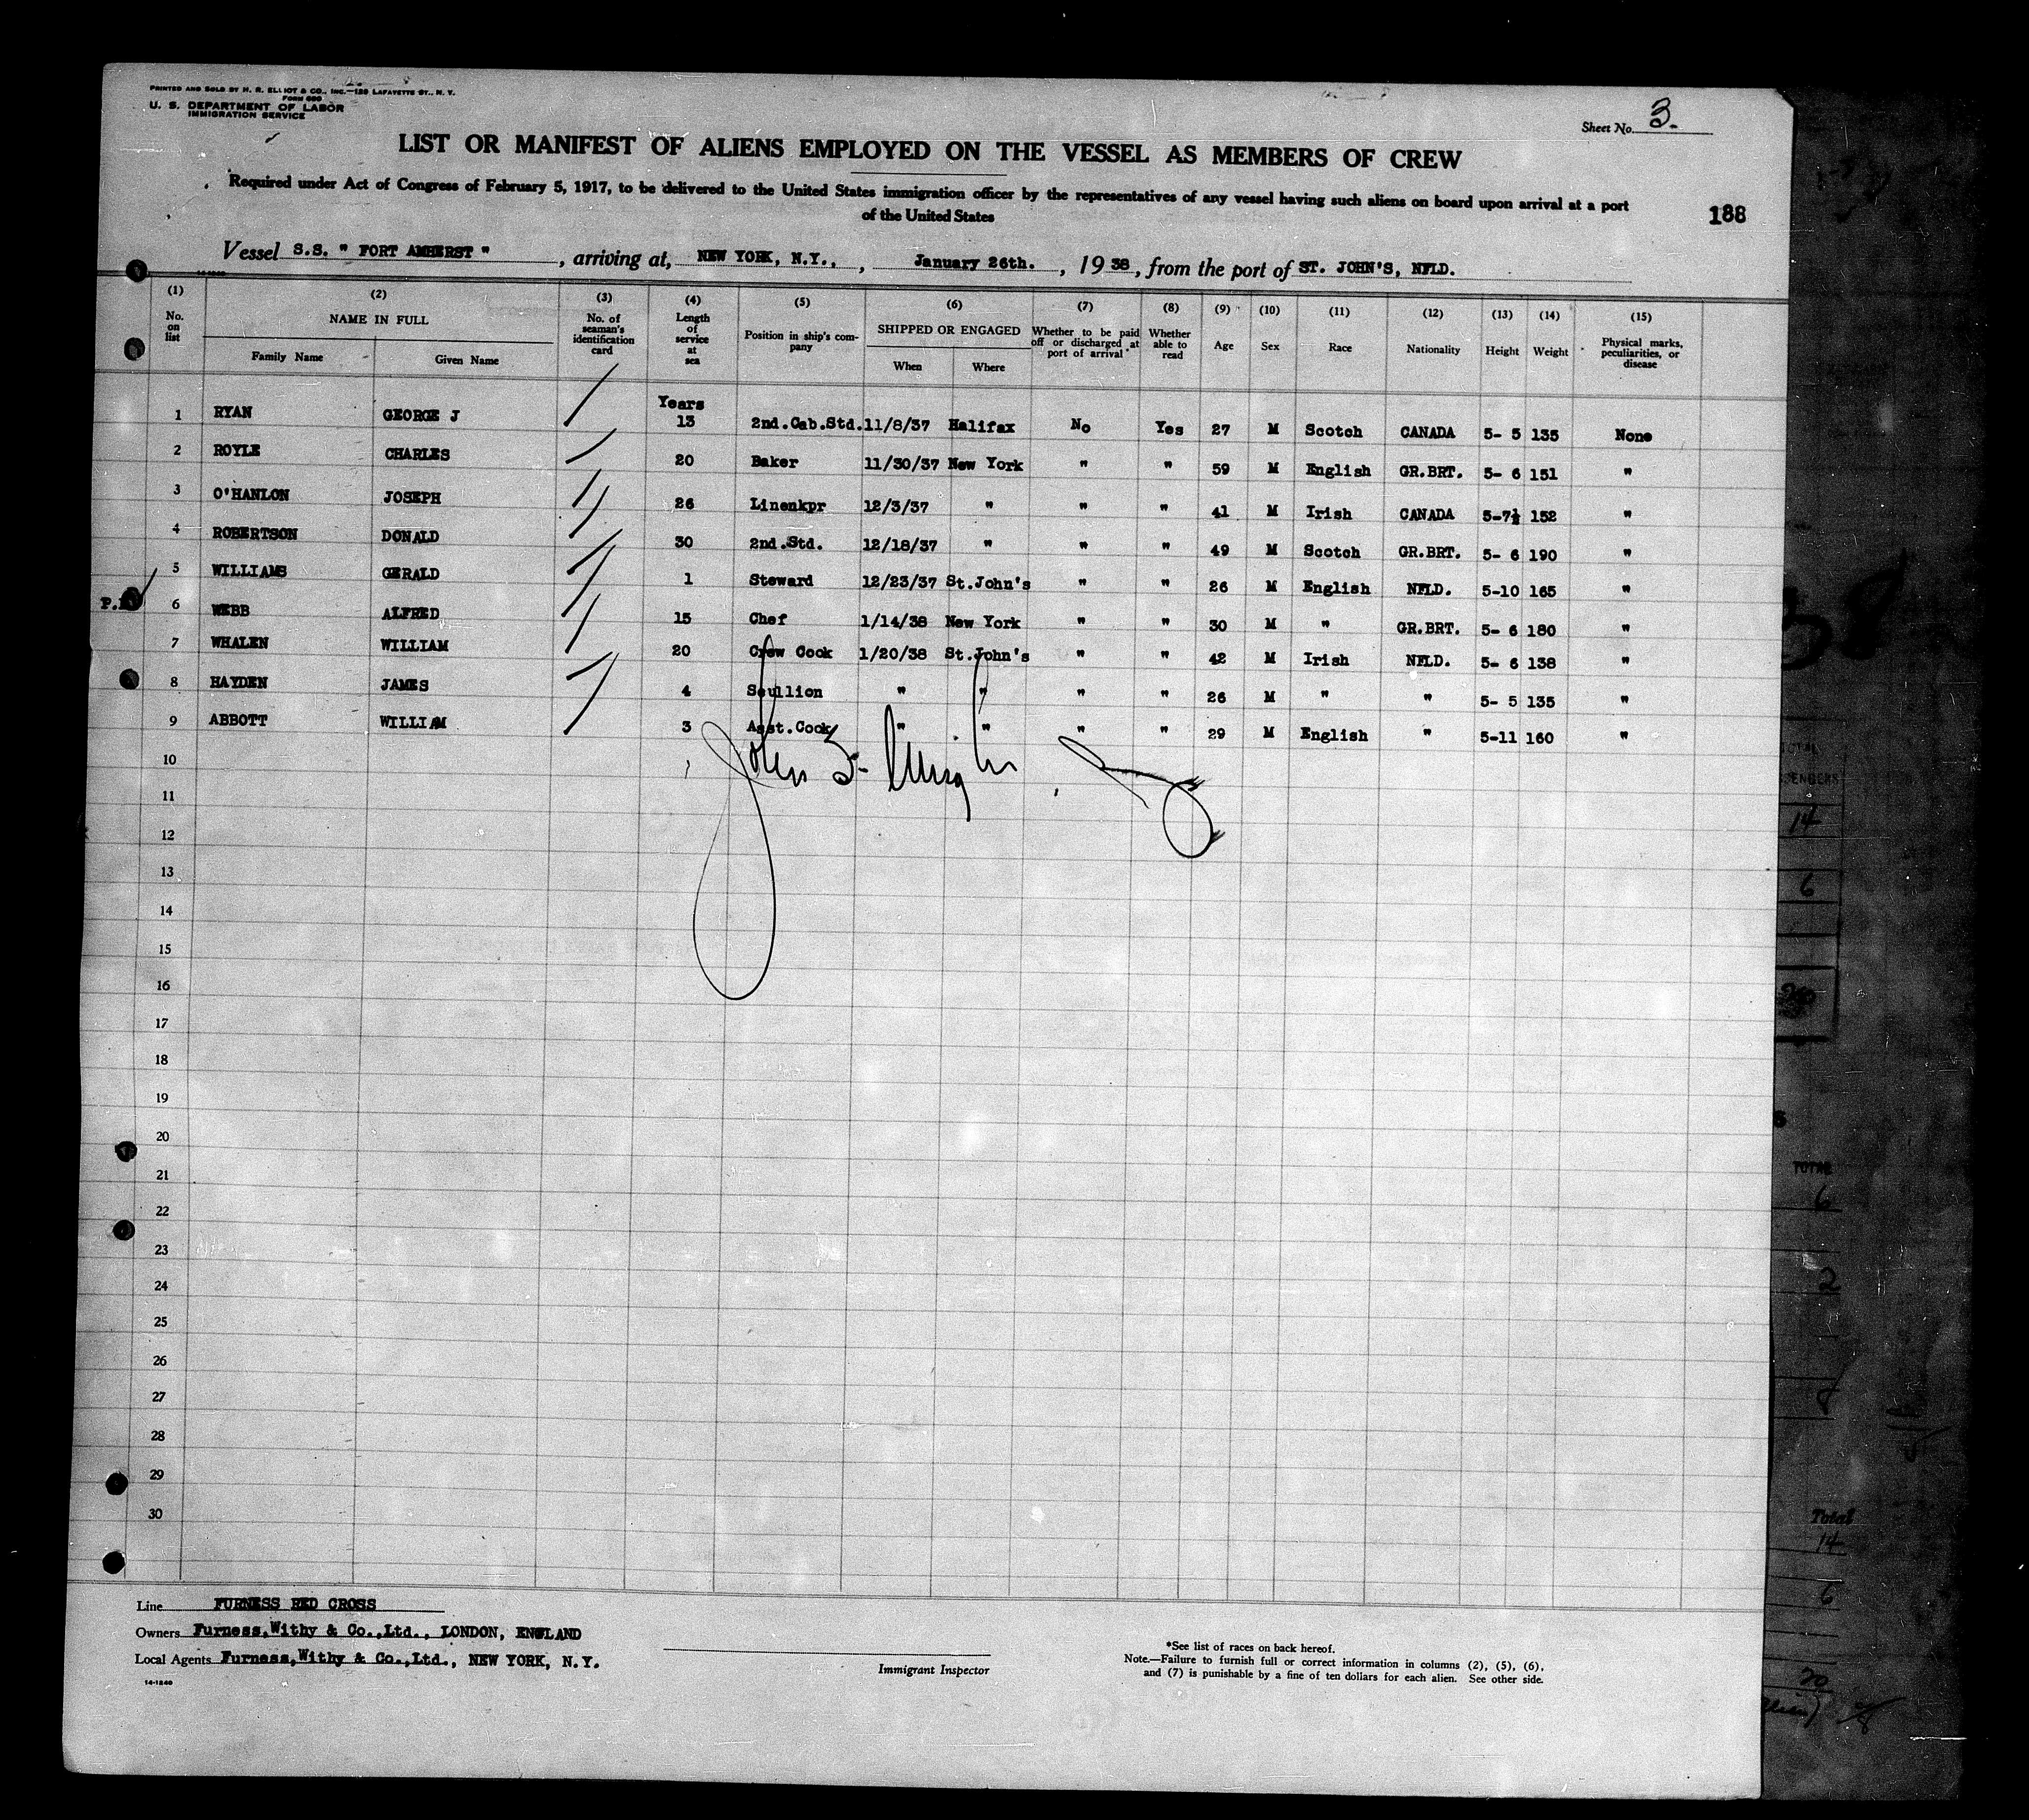 PRINTED AND SOLD BY H. R. ELLIOT & CO., INC.—129 LAFAYETTE ST., N. Y.
FORM 680
U. S. DEPARTMENT OF LABOR
IMMIGRATION SERVICE
Sheet No. 3.
LIST OR MANIFEST OF ALIENS EMPLOYED ON THE VESSEL AS MEMBERS OF CREW
Required under Act of Congress of February 5, 1917, to be delivered to the United States immigration officer by the representatives of any vessel having such aliens on board upon arrival at a port
of the United States
188
Vessel S.S. " FORT AMHERST ", arriving at, NEW YORK, N.Y., , January 26th. , 19 38, from the port of ST. JOHN'S, NFLD.
(1) (2) (3) (4) (5) (6) (7) (8) (9) (10) (11) (12) (13) (14) (15)
No. on list NAME IN FULL Family Name Given Name No. of seaman's identification card Length of service at sea Position in ship's company SHIPPED OR ENGAGED When Where Whether to be paid off or discharged at port of arrival Whether able to read Age Sex Race Nationality Height Weight Physical marks, peculiarities, or disease
Years
1 RYAN GEORGE J 13 2nd.Cab.Std. 11/8/37 Halifax No Yes 27 M Scotch CANADA 5- 5 135 None
2 ROYLE CHARLES 20 Baker 11/30/37 New York " " 59 M English GR.BRT. 5- 6 151 "
3 O'HANLON JOSEPH 26 Linenkpr 12/3/37 " " " 41 M Irish CANADA 5-7½ 152 "
4 ROBERTSON DONALD 30 2nd.Std. 12/18/37 " " " 49 M Scotch GR.BRT. 5- 6 190 "
5 WILLIAMS GERALD 1 Steward 12/23/37 St.John's " " 26 M English NFLD. 5-10 165 "
6 WEBB ALFRED 15 Chef 1/14/38 New York " " 30 M " GR.BRT. 5- 6 180 "
7 WHALEN WILLIAM 20 Crew Cook 1/20/38 St.John's " " 42 M Irish NFLD. 5- 6 138 "
8 HAYDEN JAMES 4 Scullion " " " " 26 M " " 5- 5 135 "
9 ABBOTT WILLIAM 3 Asst.Cook " " " " 29 M English " 5-11 160 "
10
11
12
13
14
15
16
17
18
19
20
21
22
23
24
25
26
27
28
29
30
Line FURNESS RED CROSS
Owners Furness,Withy & Co.,Ltd., LONDON, ENGLAND
Local Agents Furness,Withy & Co.,Ltd., NEW YORK, N.Y.
14-1240
Immigrant Inspector
*See list of races on back hereof.
Note.—Failure to furnish full or correct information in columns (2), (5), (6),
and (7) is punishable by a fine of ten dollars for each alien. See other side.
14
6
TOTAL
6
2
Total
14
6
20